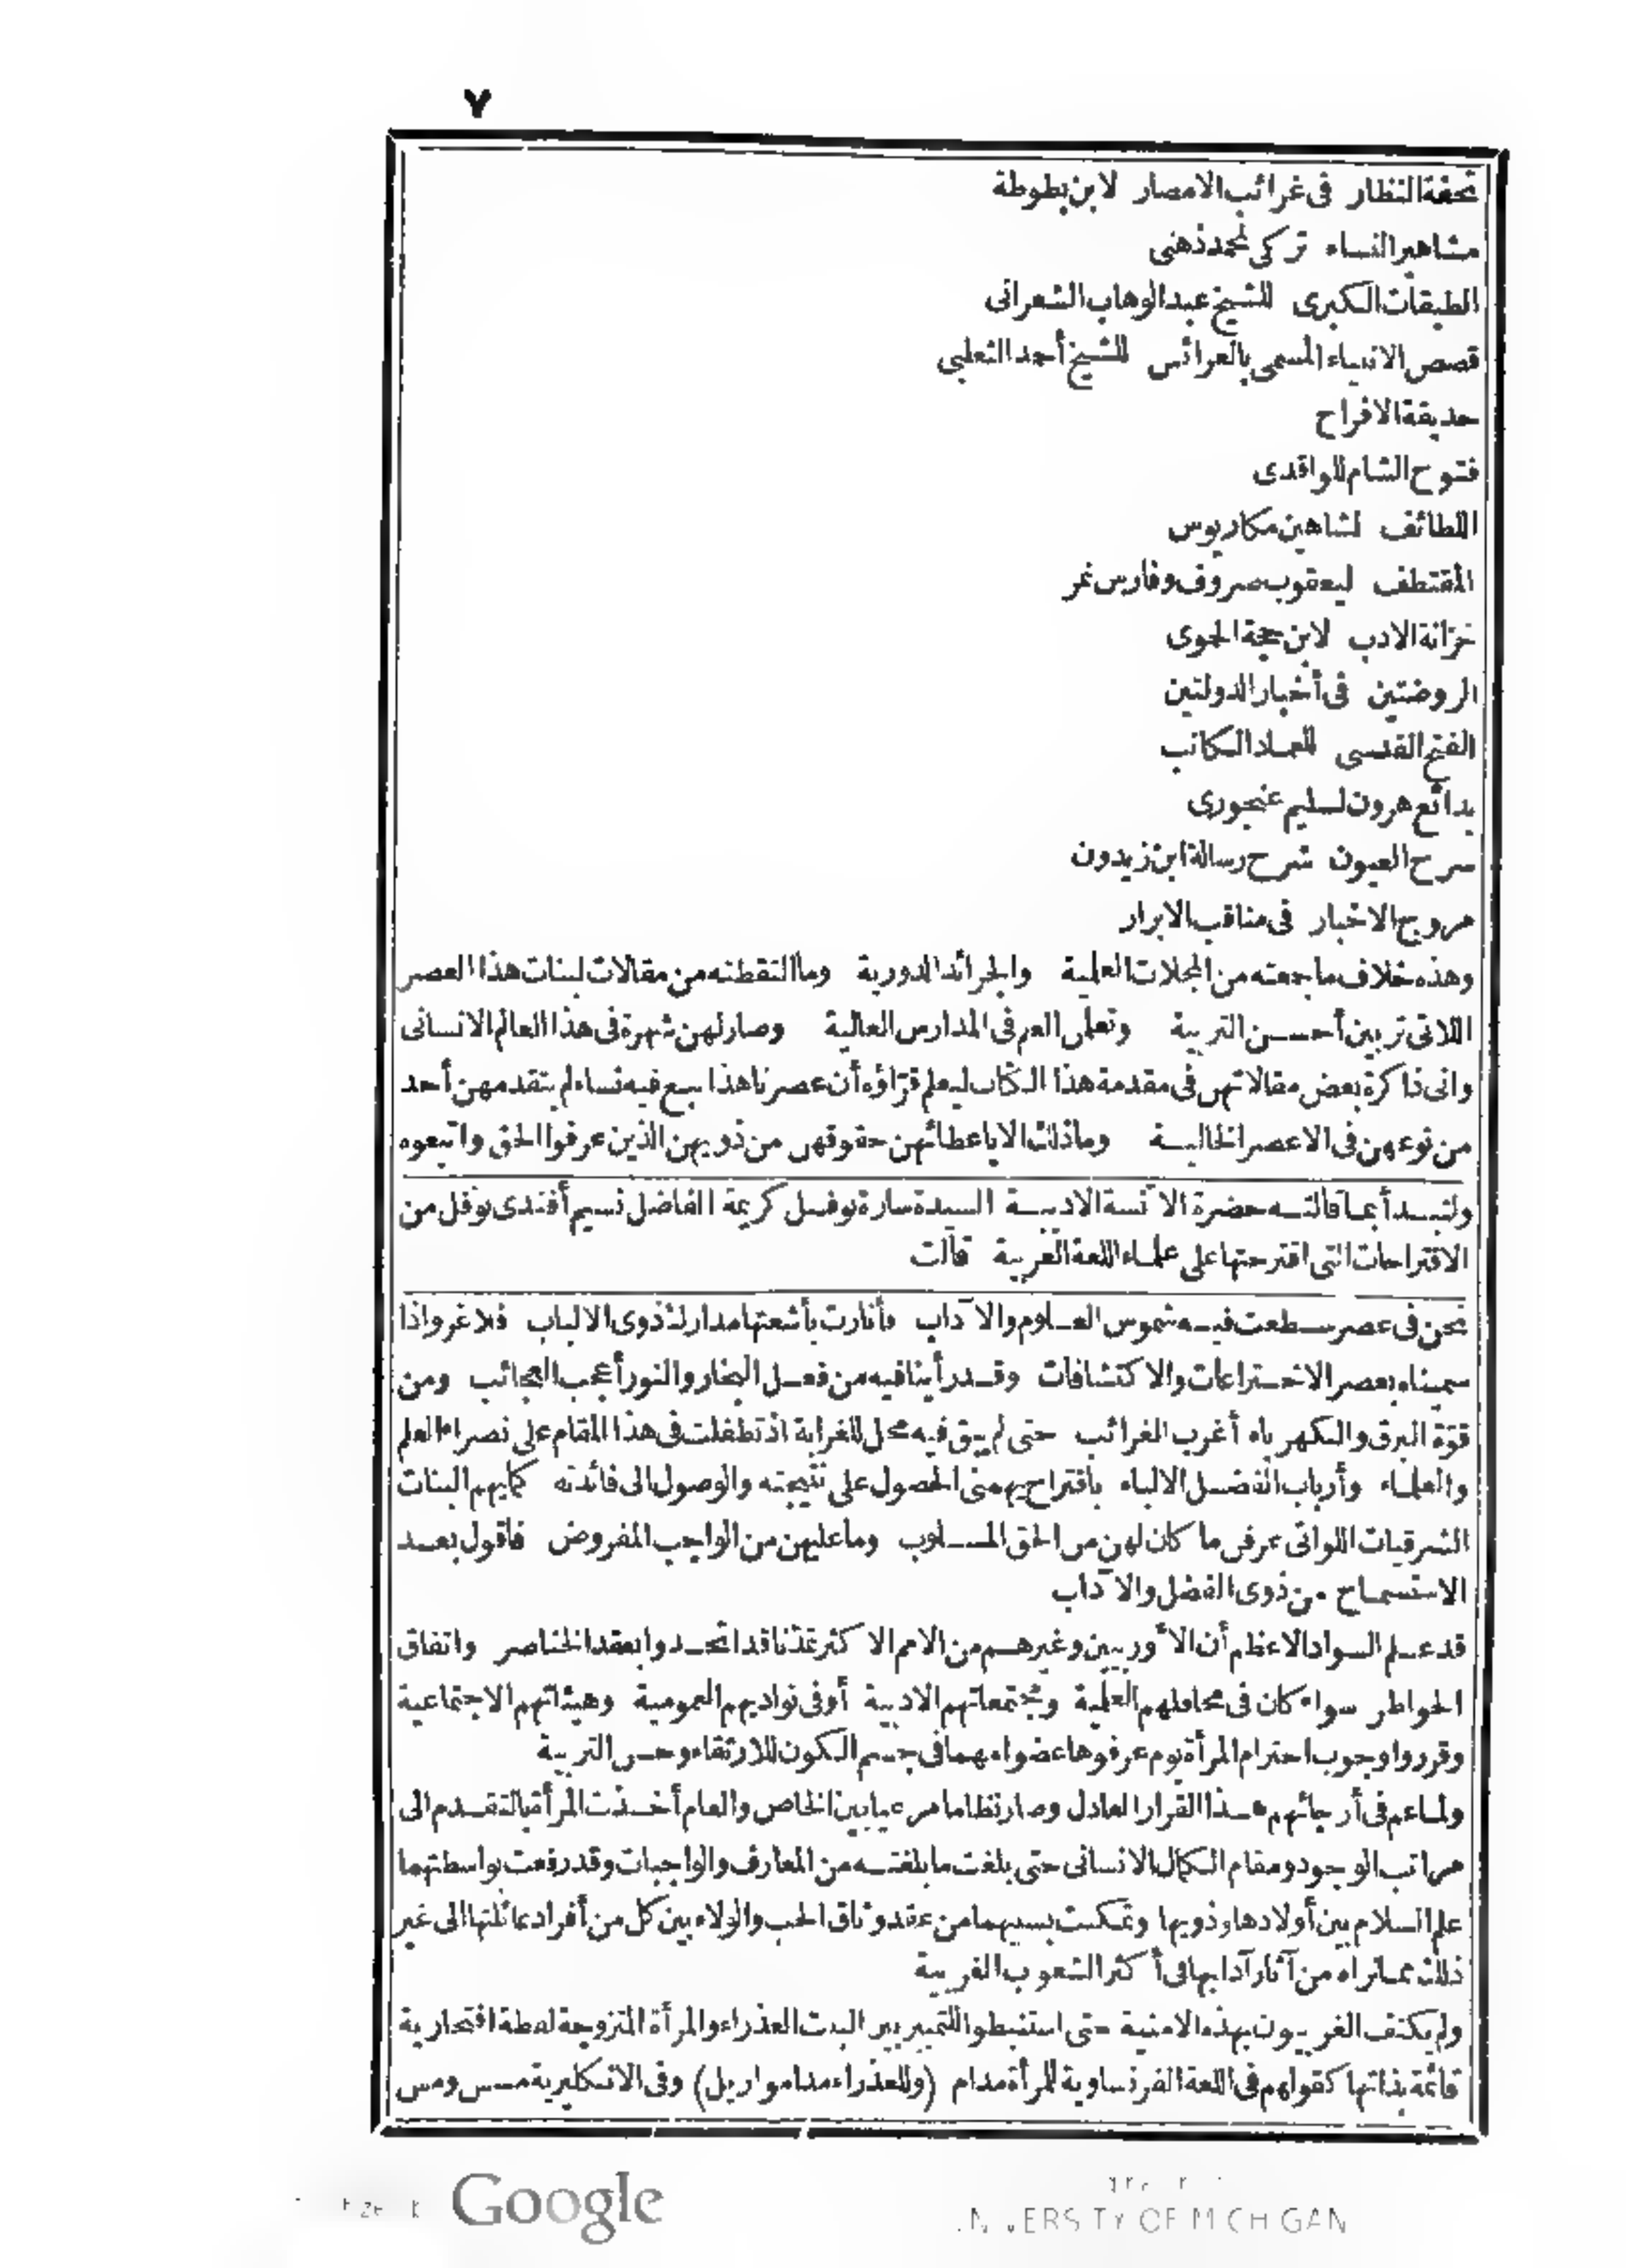 ٧
تحفة النظار فى غرائب الامصار لابن بطوطة
مشاهير النساء تركى لمحمد ذهنى
الطبقات الكبرى للشيخ عبد الوهاب الشعرانى
قصص الانبياء المسمى بالعرائس للشيخ أحمد الثعلبى
حديقة الافراح
فتوح الشام للواقدى
اللطائف لشاهين مكاريوس
المقتطف ليعقوب صروف وفارس نمر
خزانة الادب لابن حجة الحموى
الروضتين فى أخبار الدولتين
الفتح القدسى للعماد الكاتب
بدائع هرون لسليم عنحورى
سرح العيون شرح رسالة ابن زيدون
مروج الاخبار فى مناقب الابرار
وهذه خلاف ما جمعته من المجلات العلمية والجرائد الدورية وما التقطته من مقالات لبنات هذا العصر
اللاتى تربين أحسن التربية وتعلمن العلم فى المدارس العالية وصار لهن شهرة فى هذا العالم الانسانى
وانى ذاكرة بعض مقالاتهن فى مقدمة هذا الكتاب ليعلم قرّاؤه أن عصرنا هذا نبغ فيه نساء لم يتقدمهن أحد
من نوعهن فى الاعصر الخالية وما ذلك الا باعطائهن حقوقهن من ذويهن الذين عرفوا الحق واتبعوه
ولنبدأ بما قالته حضرة الآنسة الاديبة السيدة سارة نوفل كريمة الفاضل نسيم أفندى نوفل من
الاقتراحات التى اقترحتها على علماء اللغة العربية قالت
نحن فى عصر سطعت فيه شموس العلوم والآداب فأنارت بأشعتها مدارك ذوى الالباب فلا غرو اذا
سميناه بعصر الاختراعات والاكتشافات وقد رأينا فيه من فعل البخار والنور أعجب العجائب ومن
قوّة البرق والكهرباء أغرب الغرائب حتى لم يبق فيه محل للغرابة اذ تطفلت فى هذا المقام على نصراء العلم
والعلماء وأرباب الفضل الالباء باقتراح يهمنى الحصول على نتيجته والوصول الى فائدته كما يهم البنات
الشرقيات اللواتى عرفن ما كان لهن من الحق المسلوب وما عليهن من الواجب المفروض فاقول بعد
الاستسماح من ذوى الفضل والآداب
قد علم السواد الاعظم أن الأوربيين وغيرهم من الامم الاكثر تمدّنا قد اتحدوا بعقد الخناصر واتفاق
الخواطر سواء كان فى محافلهم العلمية ومجتمعاتهم الادبية أو فى نواديهم العمومية وهيئاتهم الاجتماعية
وقرروا وجوب احترام المرأة يوم عرفوها عضوا مهما فى جسم الكون للارتقاء وحسن التربية
ولما عم فى أرجائهم هذا القرار العادل وصار نظاما مرعيا بين الخاص والعام أخذت المرأة بالتقدم الى
مراتب الوجود ومقام الكمال الانسانى حتى بلغت ما بلغته من المعارف والواجبات وقد رفعت بواسطتهما
علم السلام بين أولادها وذويها وتمكنت بسببهما من عقد وثاق الحب والولاء بين كل من أفراد عائلتها الى غير
ذلك مما نراه من آثار آدابها فى أكثر الشعوب الغربية
ولم يكتف الغربيون بهذه الامنية حتى استنبطوا للتمييز بين البنت العذراء والمرأة المتزوجة لفظة افتخارية
قائمة بذاتها كقولهم فى اللغة الفرنساوية للمرأة مدام (وللعذراء مدامواريل) وفى الانكليزية مسس ومس
Google
UNIVERSITY OF MICHIGAN